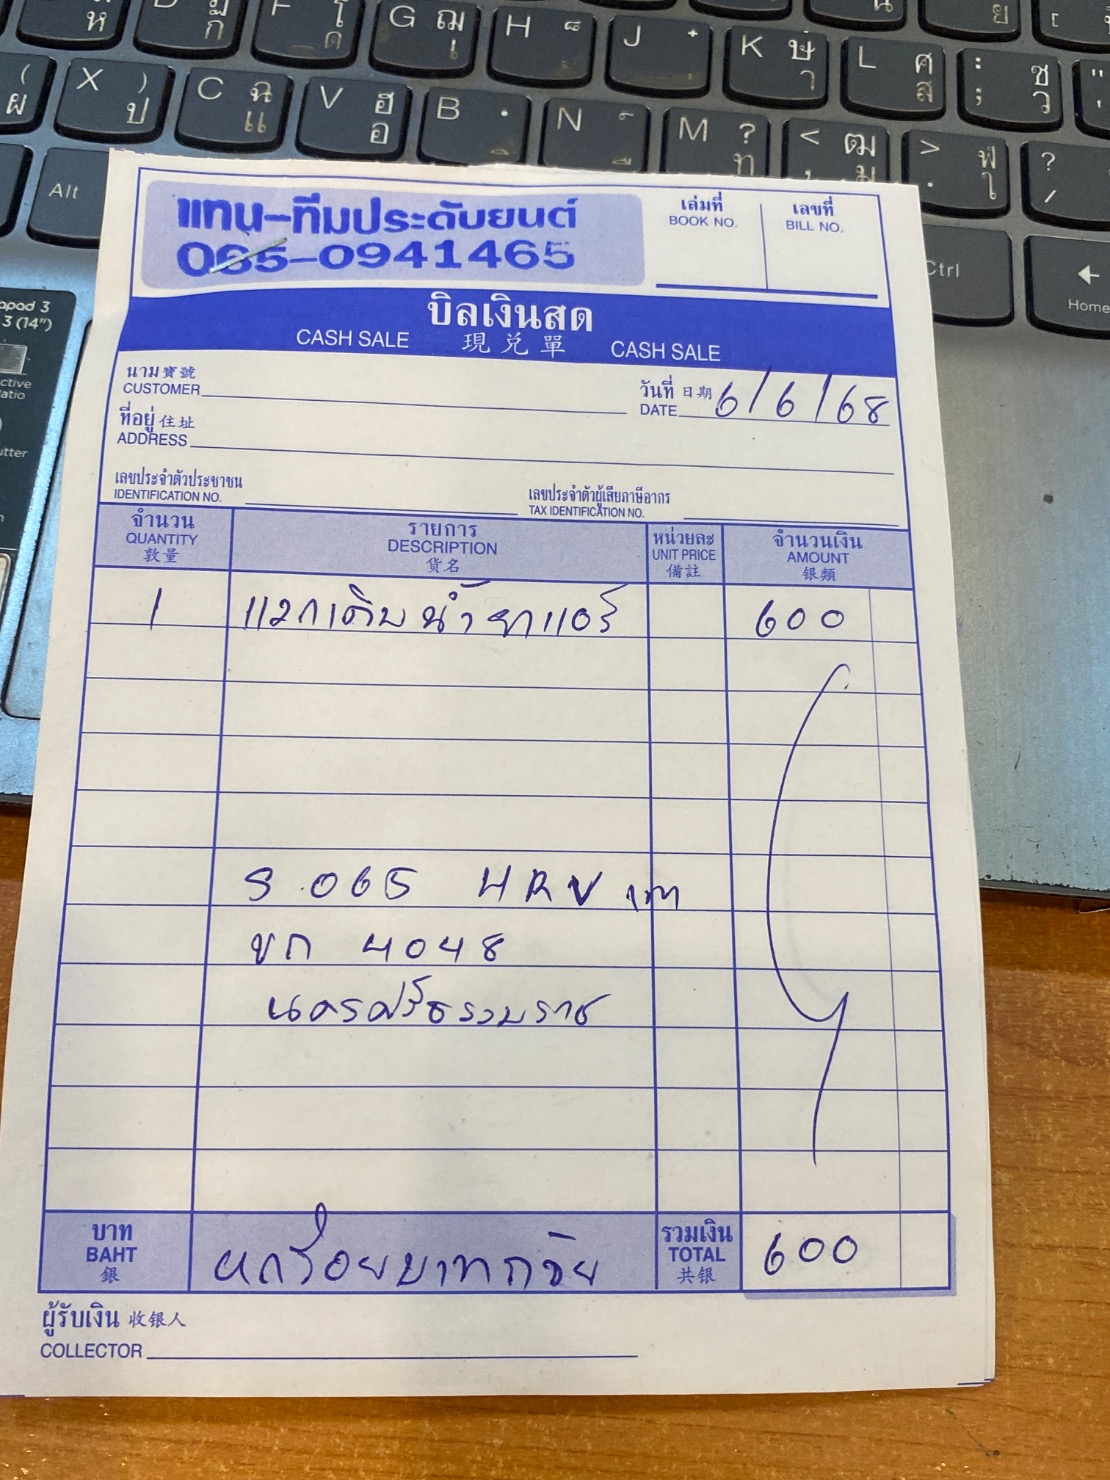 แทน-ทีมประดับยนต์
065-0941465
เล่มที่
BOOK NO.
เลขที่
BILL NO.
บิลเงินสด
CASH SALE 現兑單 CASH SALE
นาม寳號
CUSTOMER
วันที่ 日期
DATE 6/6/68
ที่อยู่ 住址
ADDRESS
เลขประจำตัวประชาชน
IDENTIFICATION NO.
เลขประจำตัวผู้เสียภาษีอากร
TAX IDENTIFICATION NO.
จำนวน
QUANTITY
数量
รายการ
DESCRIPTION
貨名
หน่วยละ
UNIT PRICE
備註
จำนวนเงิน
AMOUNT
银類
1 แวกเติมน้ำยาแอร์ 600
S.065 HRV เทา
ขก 4048
นครศรีธรรมราช
บาท
BAHT
銀
หกร้อยบาทถ้วย
รวมเงิน
TOTAL
共银
600
ผู้รับเงิน 收银人
COLLECTOR
Alt
Ctrl
Home
X ) ป
C ฉ แ
V ฮ อ
B
N
M ? ท
G ฌ เ
H
J
K ษ า
L ศ ส
: ; ซ ว
< ฒ ม
> ฬ ใ
? /